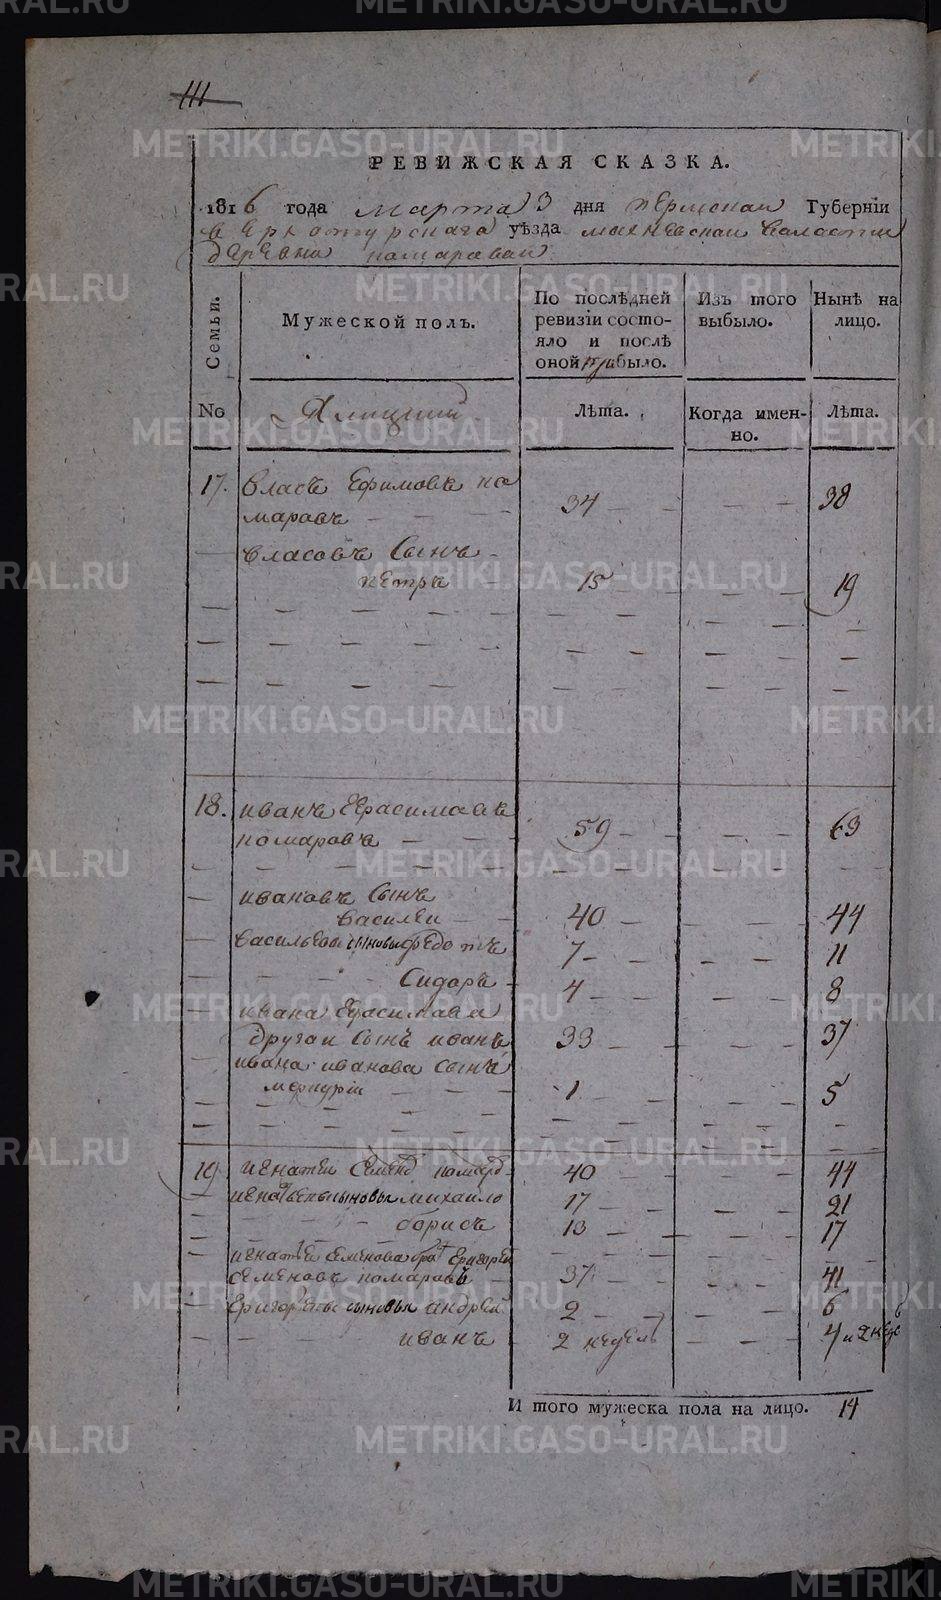 111
РЕВИЖСКАЯ СКАЗКА.
1816 года марта 3 дня пермской Губерніи
верхотурскаго уѣзда махневскай валасти
деревни комаравай
Семьи. Мужеской полъ. По послѣдней ревизіи состояло и послѣ оной прибыло. Изъ того выбыло. Нынѣ на лицо.
No Лѣта. Когда именно. Лѣта.
17. Власъ Ефимовъ ко
маравъ 34 38
Власовъ Сынъ
петръ 15 19
18. иванъ Герасимавъ
комаравъ 59 63
ивановъ Сынъ
Василеи 40 44
Васильевы сыновья федотъ 7 11
Сидоръ 4 8
ивана Герасимава
другои Сынъ иванъ 33 37
ивана иванова Сынъ
меркурiи 1 5
19 игнатеи Семенд комард 40 44
игнатьевы сыновья михаило 17 21
борисъ 13 17
игнатья Семенова брат Григореи
Семеновъ комаравъ 37 41
Григорьевы сыновья андреи 2 6
иванъ 2 недель 4 и 2 неде
И того мужеска пола на лицо. 14
METRIKI.GASO-URAL.RU